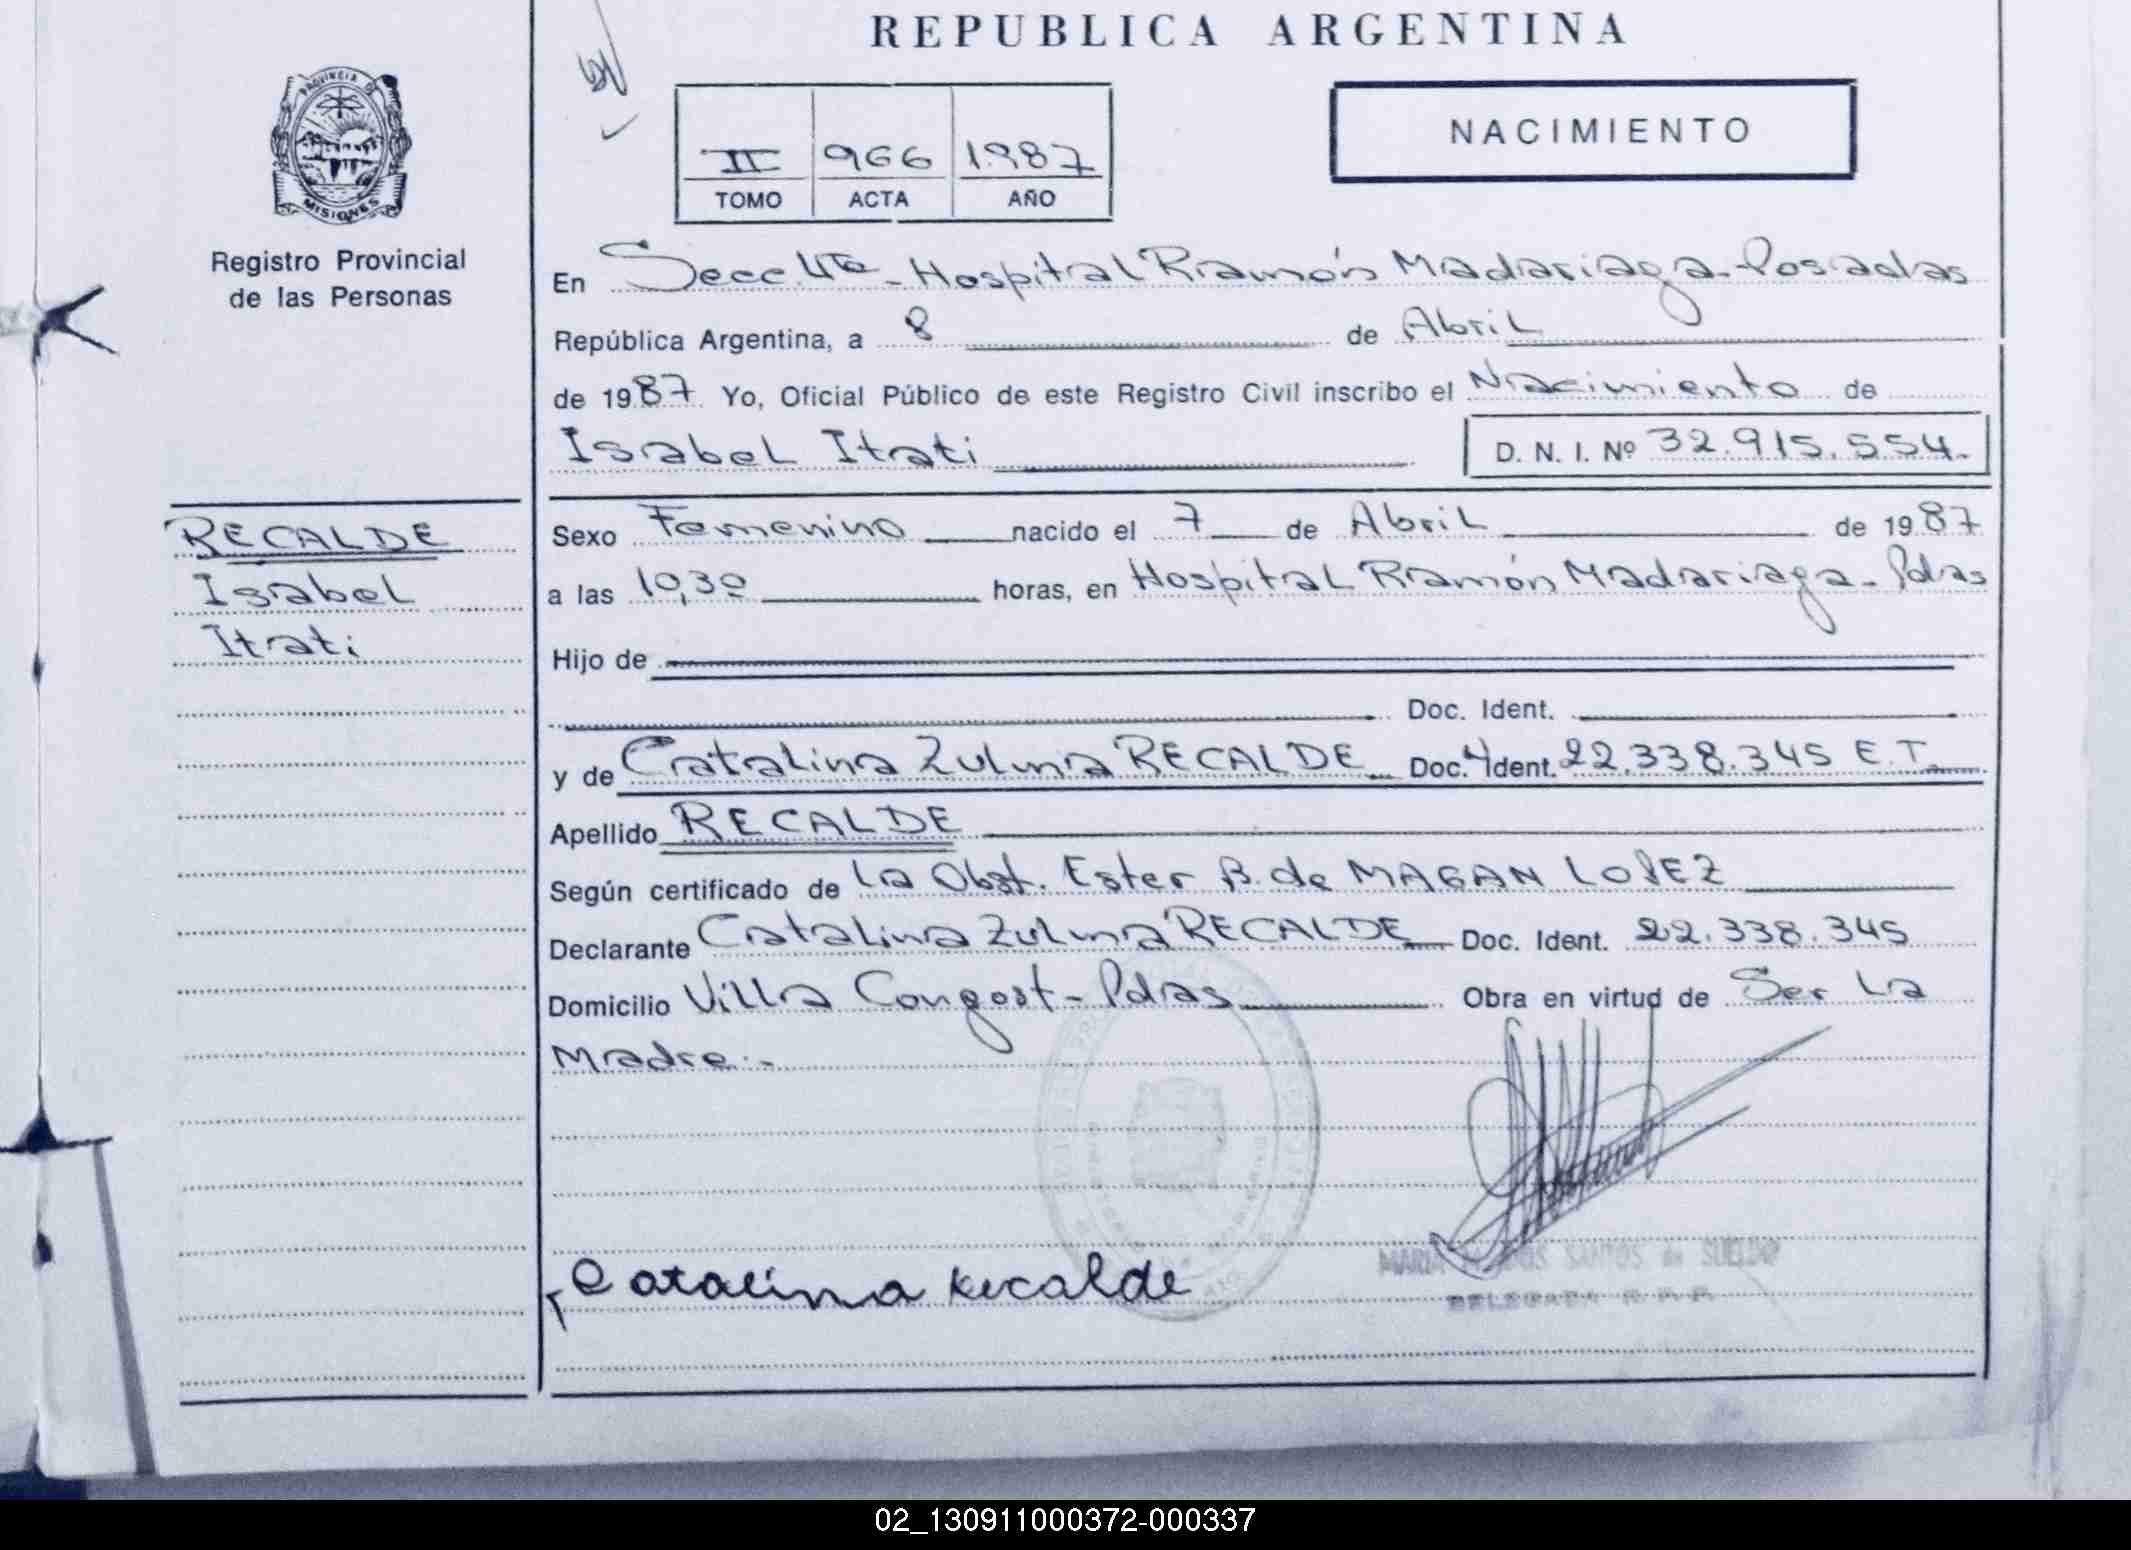 REPUBLICA ARGENTINA
PROVINCIA DE
MISIONES
Registro Provincial
de las Personas
II 966 1987
TOMO ACTA AÑO
NACIMIENTO
En Secc. 4ta - Hospital Ramón Madariaga - Posadas
República Argentina, a 8 de Abril
de 1987. Yo, Oficial Público de este Registro Civil inscribo el Nacimiento de
Isabel Itati D. N. I. Nº 32.915.554.-
RECALDE
Isabel
Itati
Sexo Femenino nacido el 7 de Abril de 1987
a las 10,30 horas, en Hospital Ramón Madariaga - Pdas
Hijo de
Doc. Ident.
y de Catalina Zulma RECALDE Doc. Ident. 22.338.345 E.T.
Apellido RECALDE
Según certificado de la Obst. Ester B. de MAGAN LOPEZ
Declarante Catalina Zulma RECALDE Doc. Ident. 22.338.345
Domicilio Villa Congost - Pdas Obra en virtud de Ser la
Madre.-
Catalina Recalde
MARIA DOS SANTOS de SUELDO
DELEGADA R. P. P.
02_130911000372-000337